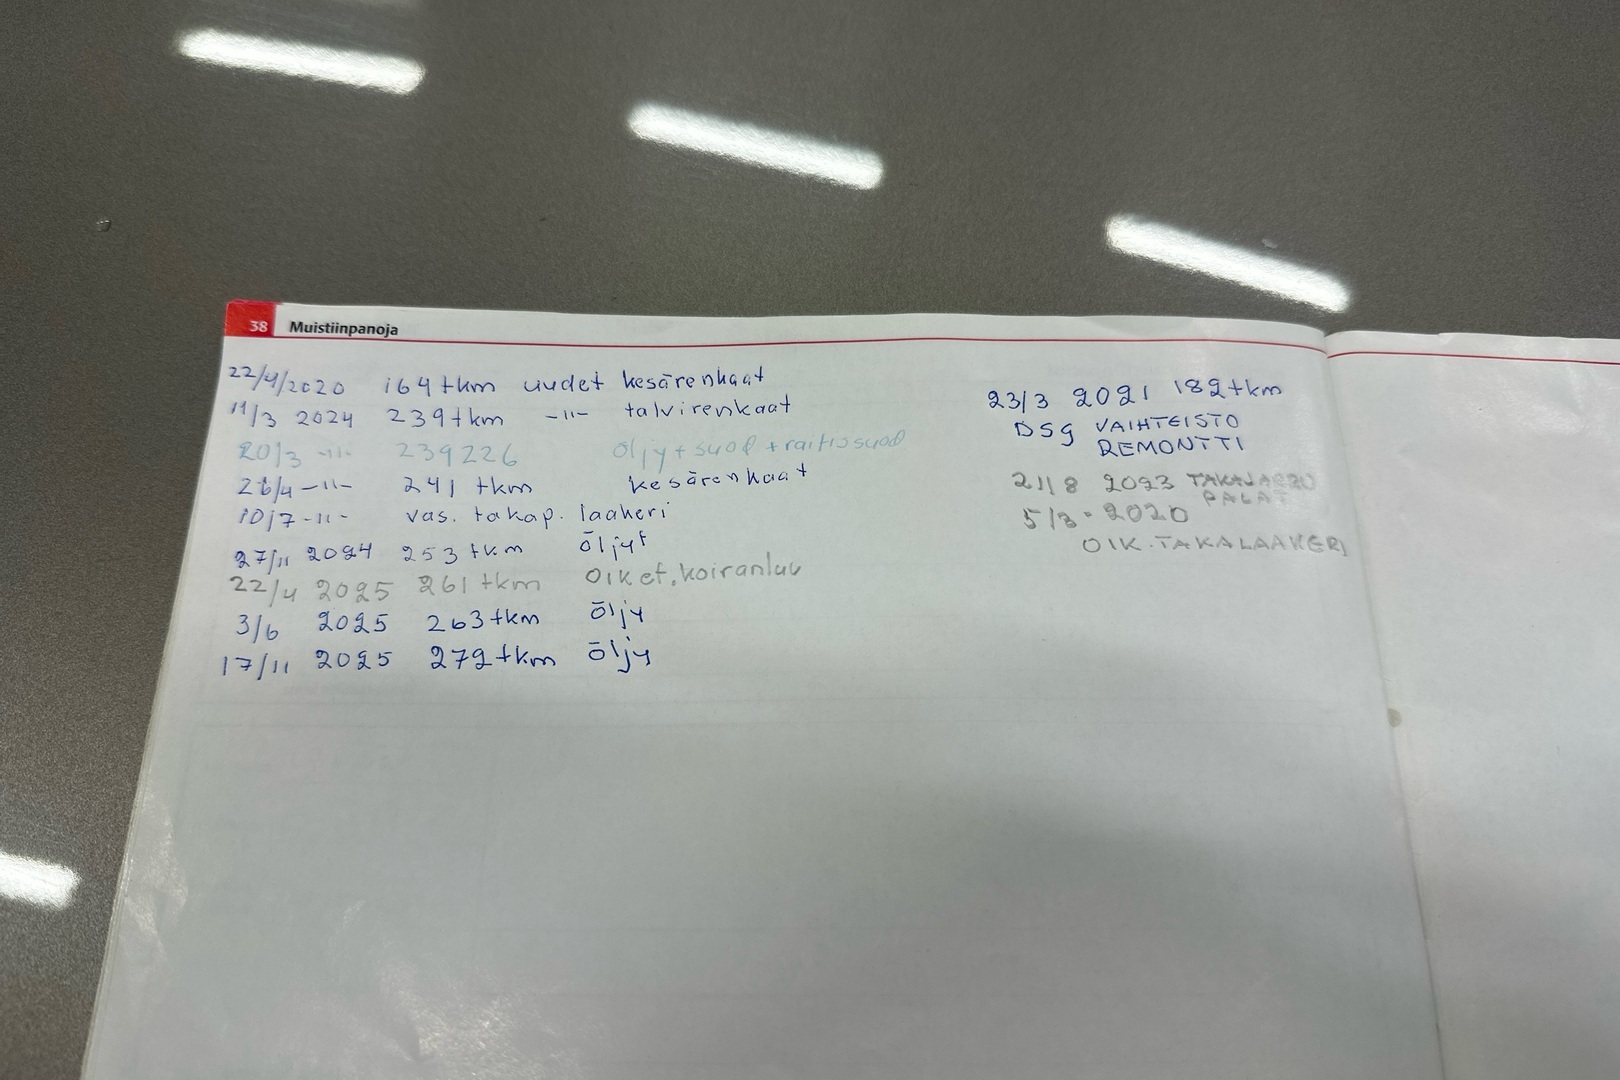 38 Muistiinpanoja
22/4/2020 164 tkm uudet kesärenkaat
11/3 2024 239 tkm -11- talvirenkaat
20/3 -11- 239226 öljy + suod + raitissuod
26/4 -11- 241 tkm kesärenkaat
10/7 -11- vas. takap. laakeri
27/11 2024 253 tkm öljyt
22/4 2025 261 tkm oik et. koiranluu
3/6 2025 263 tkm öljy
17/11 2025 272 tkm öljy
23/3 2021 182 tkm
DSG VAIHTEISTO
REMONTTI
21/8 2023 TAKAJARRU
PALAT
5/3 - 2020
OIK. TAKALAAKERI